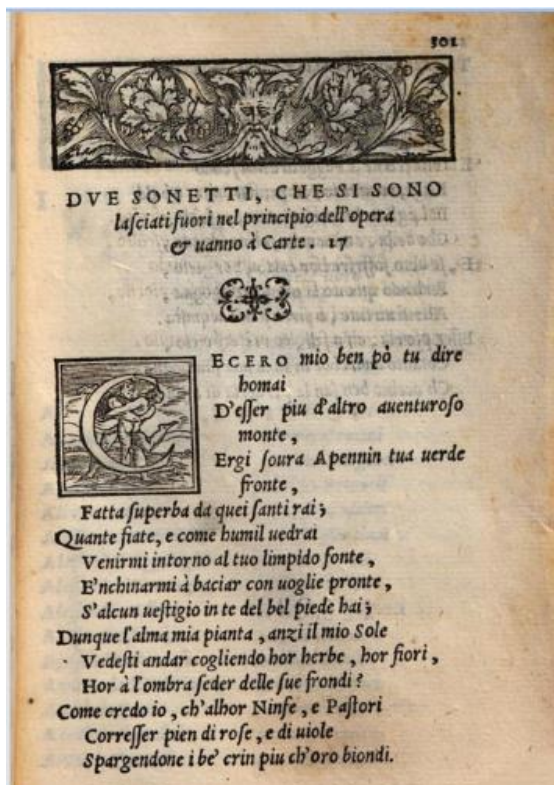 301
DVE SONETTI, CHE SI SONO
lasciati fuori nel principio dell'opera
& uanno à Carte. 17
CECERO mio ben pò tu dire
homai
D'esser piu d'altro auenturoso
monte,
Ergi soura Apennin tua uerde
fronte,
Fatta superba da quei santi rai;
Quante fiate, e come humil uedrai
Venirmi intorno al tuo limpido fonte,
E'nchinarmi à baciar con uoglie pronte,
S'alcun uestigio in te del bel piede hai;
Dunque l'alma mia pianta, anzi il mio Sole
Vedesti andar cogliendo hor herbe, hor fiori,
Hor à l'ombra seder delle sue frondi?
Come credo io, ch'alhor Ninfe, e Pastori
Corresser pien di rose, e di uiole
Spargendone i be' crin piu ch'oro biondi.